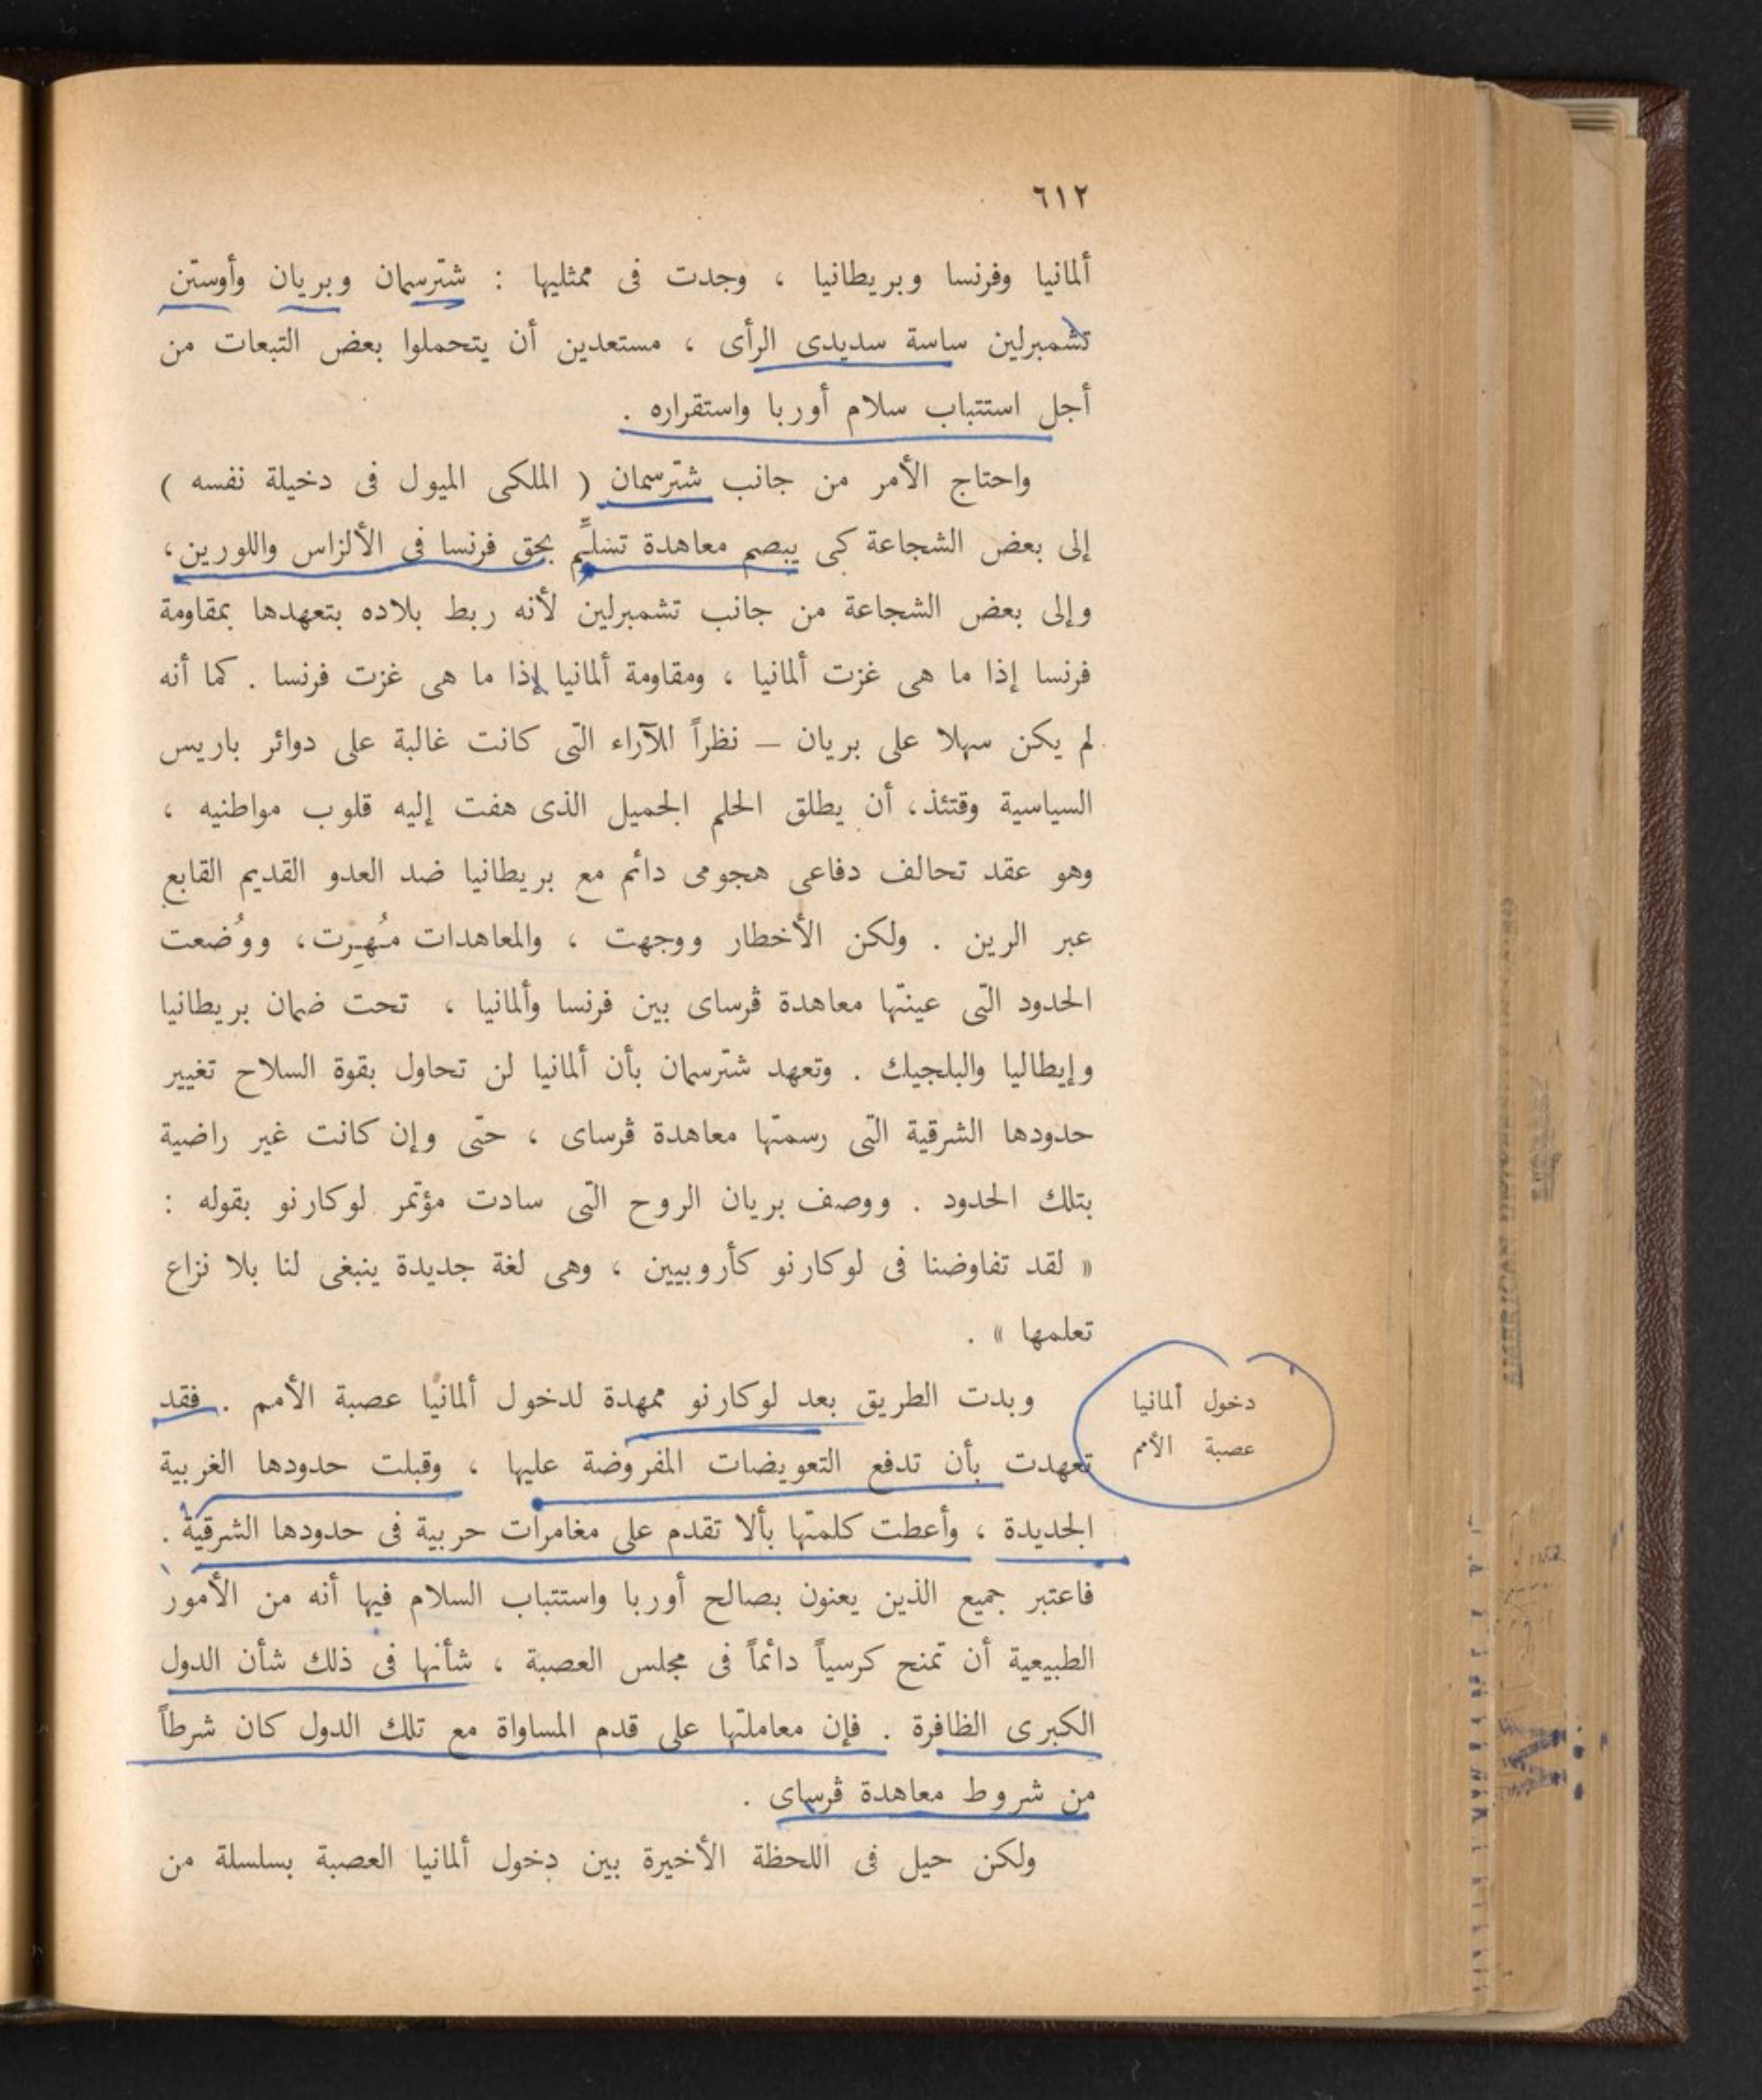 ٦١٢
ألمانيا وفرنسا وبريطانيا ، وجدت فى ممثليها : شترسمان وبريان وأوستن
تشمبرلين ساسة سديدى الرأى ، مستعدين أن يتحملوا بعض التبعات من
أجل استتباب سلام أوربا واستقراره .
واحتاج الأمر من جانب شترسمان ( الملكى الميول فى دخيلة نفسه )
إلى بعض الشجاعة كى يبصم معاهدة تسَلِّم بحق فرنسا فى الألزاس واللورين ،
وإلى بعض الشجاعة من جانب تشمبرلين لأنه ربط بلاده بتعهدها بمقاومة
فرنسا إذا ما هى غزت ألمانيا ، ومقاومة ألمانيا إذا ما هى غزت فرنسا . كما أنه
لم يكن سهلا على بريان – نظراً للآراء التى كانت غالبة على دوائر باريس
السياسية وقتئذ، أن يطلق الحلم الجميل الذى هفت إليه قلوب مواطنيه ،
وهو عقد تحالف دفاعى هجومى دائم مع بريطانيا ضد العدو القديم القابع
عبر الرين . ولكن الأخطار ووجهت ، والمعاهدات مُهِرت، ووُضعت
الحدود التى عينتها معاهدة ڤرساى بين فرنسا وألمانيا ، تحت ضمان بريطانيا
وإيطاليا والبلجيك . وتعهد شترسمان بأن ألمانيا لن تحاول بقوة السلاح تغيير
حدودها الشرقية التى رسمتها معاهدة ڤرساى ، حتى وإن كانت غير راضية
بتلك الحدود . ووصف بريان الروح التى سادت مؤتمر لوكارنو بقوله :
« لقد تفاوضنا فى لوكارنو كأروبيين ، وهى لغة جديدة ينبغى لنا بلا نزاع
تعلمها » .
دخول ألمانيا
عصبة الأمم
وبدت الطريق بعد لوكارنو ممهدة لدخول ألمانيا عصبة الأمم . فقد
تعهدت بأن تدفع التعويضات المفروضة عليها ، وقبلت حدودها الغربية
الجديدة ، وأعطت كلمتها بألا تقدم على مغامرات حربية فى حدودها الشرقية .
فاعتبر جميع الذين يعنون بصالح أوربا واستتباب السلام فيها أنه من الأمور
الطبيعية أن تمنح كرسياً دائماً فى مجلس العصبة ، شأنها فى ذلك شأن الدول
الكبرى الظافرة . فإن معاملتها على قدم المساواة مع تلك الدول كان شرطاً
من شروط معاهدة ڤرساى .
ولكن حيل فى اللحظة الأخيرة بين دخول ألمانيا العصبة بسلسلة من